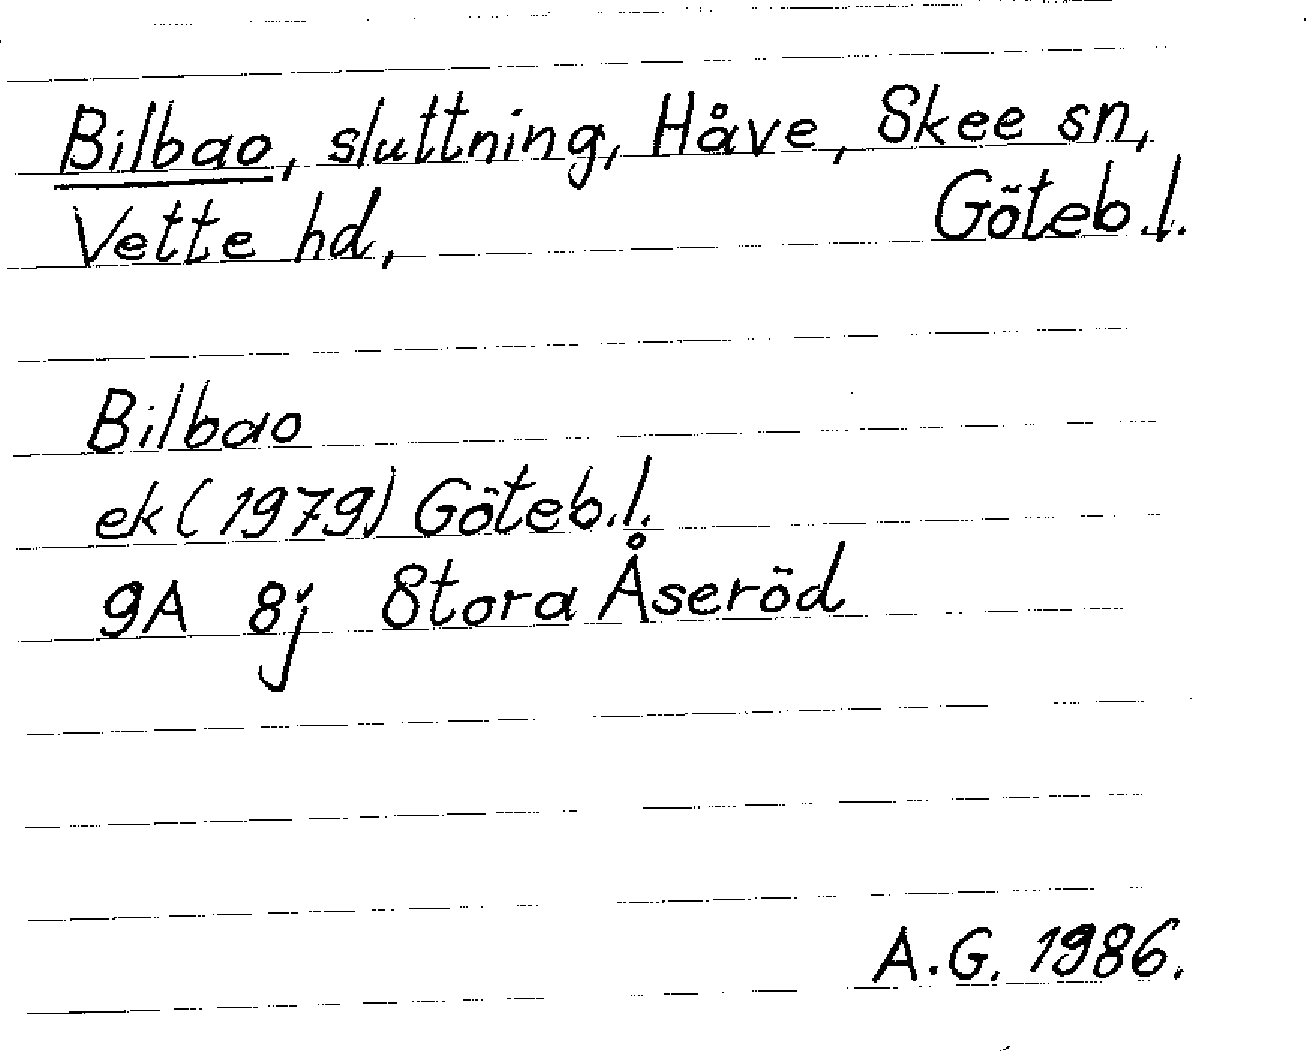 Bilbao, sluttning, Håve, Skee sn,
Vette hd, Göteb.l.
Bilbao
ek (1979) Göteb.l.
9A 8j Stora Åseröd
A.G. 1986.